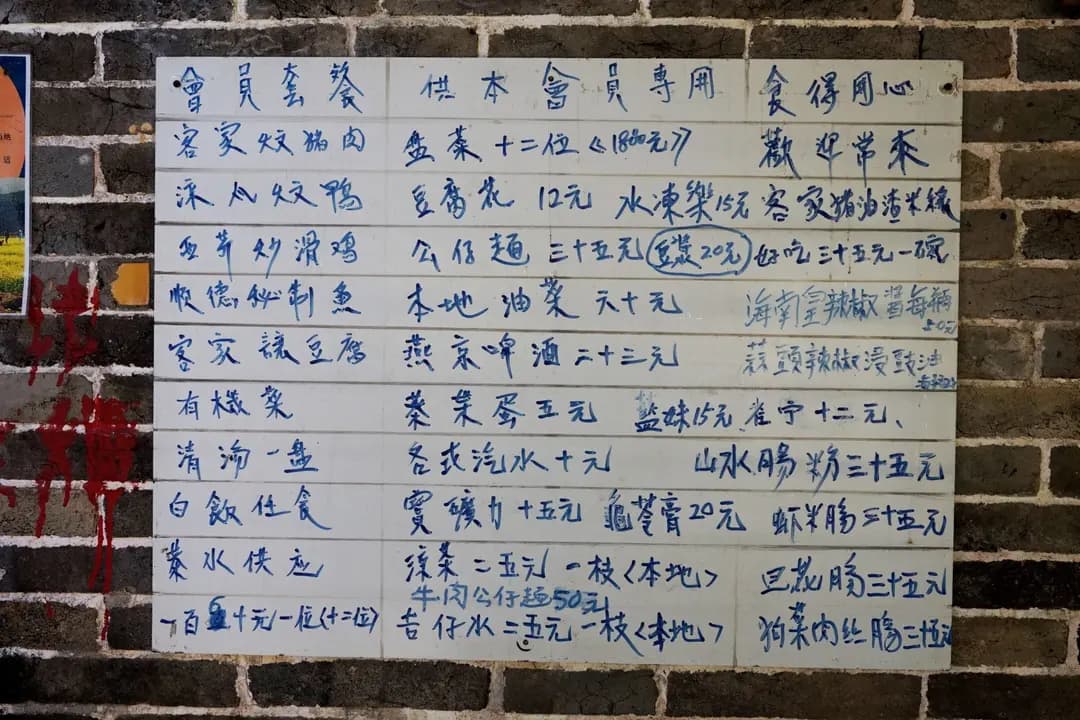 會員套餐 供本會員專用 食得用心
客家炆猪肉 盘菜十二位《1800元》 歡迎常來
深水炆鴨 豆腐花 12元 水凍樂15元 客家猪油渣米線
西芹炒滑鸡 公仔麵 三十五元 豆漿20元 好吃三十五元一碗
順德秘制魚 本地油菜 六十元 海南皇辣椒醬每瓶
50元
客家讓豆腐 燕京啤酒二十三元 蒜頭辣椒浸豉油
有機菜 茶葉蛋五元 藍妹15元 雀宁十二元、
清湯一盤 各式汽水十元 山水腸粉三十五元
白飯任食 寶礦力十五元 龜苓膏20元 虾米腸三十五元
茶水供应 涼茶二五元一枝<本地> 豆花腸三十五元
牛肉公仔麵50元
一百 十元一位(十二位) 吉仔水二五元一枝<本地> 菜肉丝腸三十五元